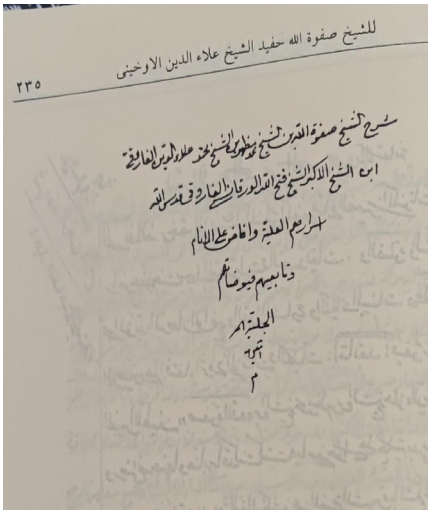 للشيخ صفوة الله حفيد الشيخ علاء الدين الاوخيني
٢٣٥
شرح الشيخ صفوة الله بن الشيخ محمد مظهر بن الشيخ محمد علاء الدين الفاروقي
ابن الشيخ الاكبر الشيخ فتح الله الورقانسي الفاروقي قدس الله
اسرارهم العلية وافاض على الانام
وتابعيهم فيوضاتهم
الجلية
انتهى
م